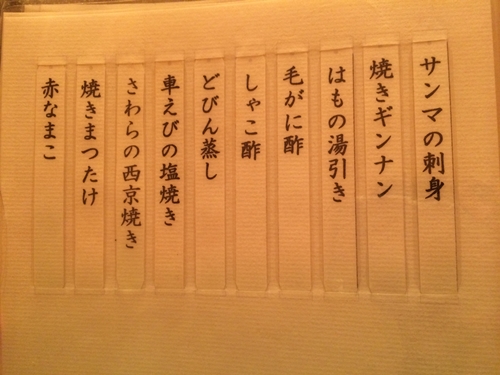 サンマの刺身
焼きギンナン
はもの湯引き
毛がに酢
しゃこ酢
どびん蒸し
車えびの塩焼き
さわらの西京焼き
焼きまつたけ
赤なまこ